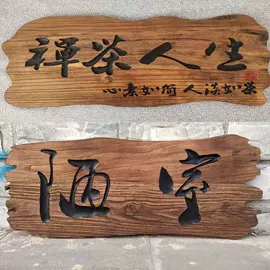 禪茶人生
心素如简人淡如菊
陋室